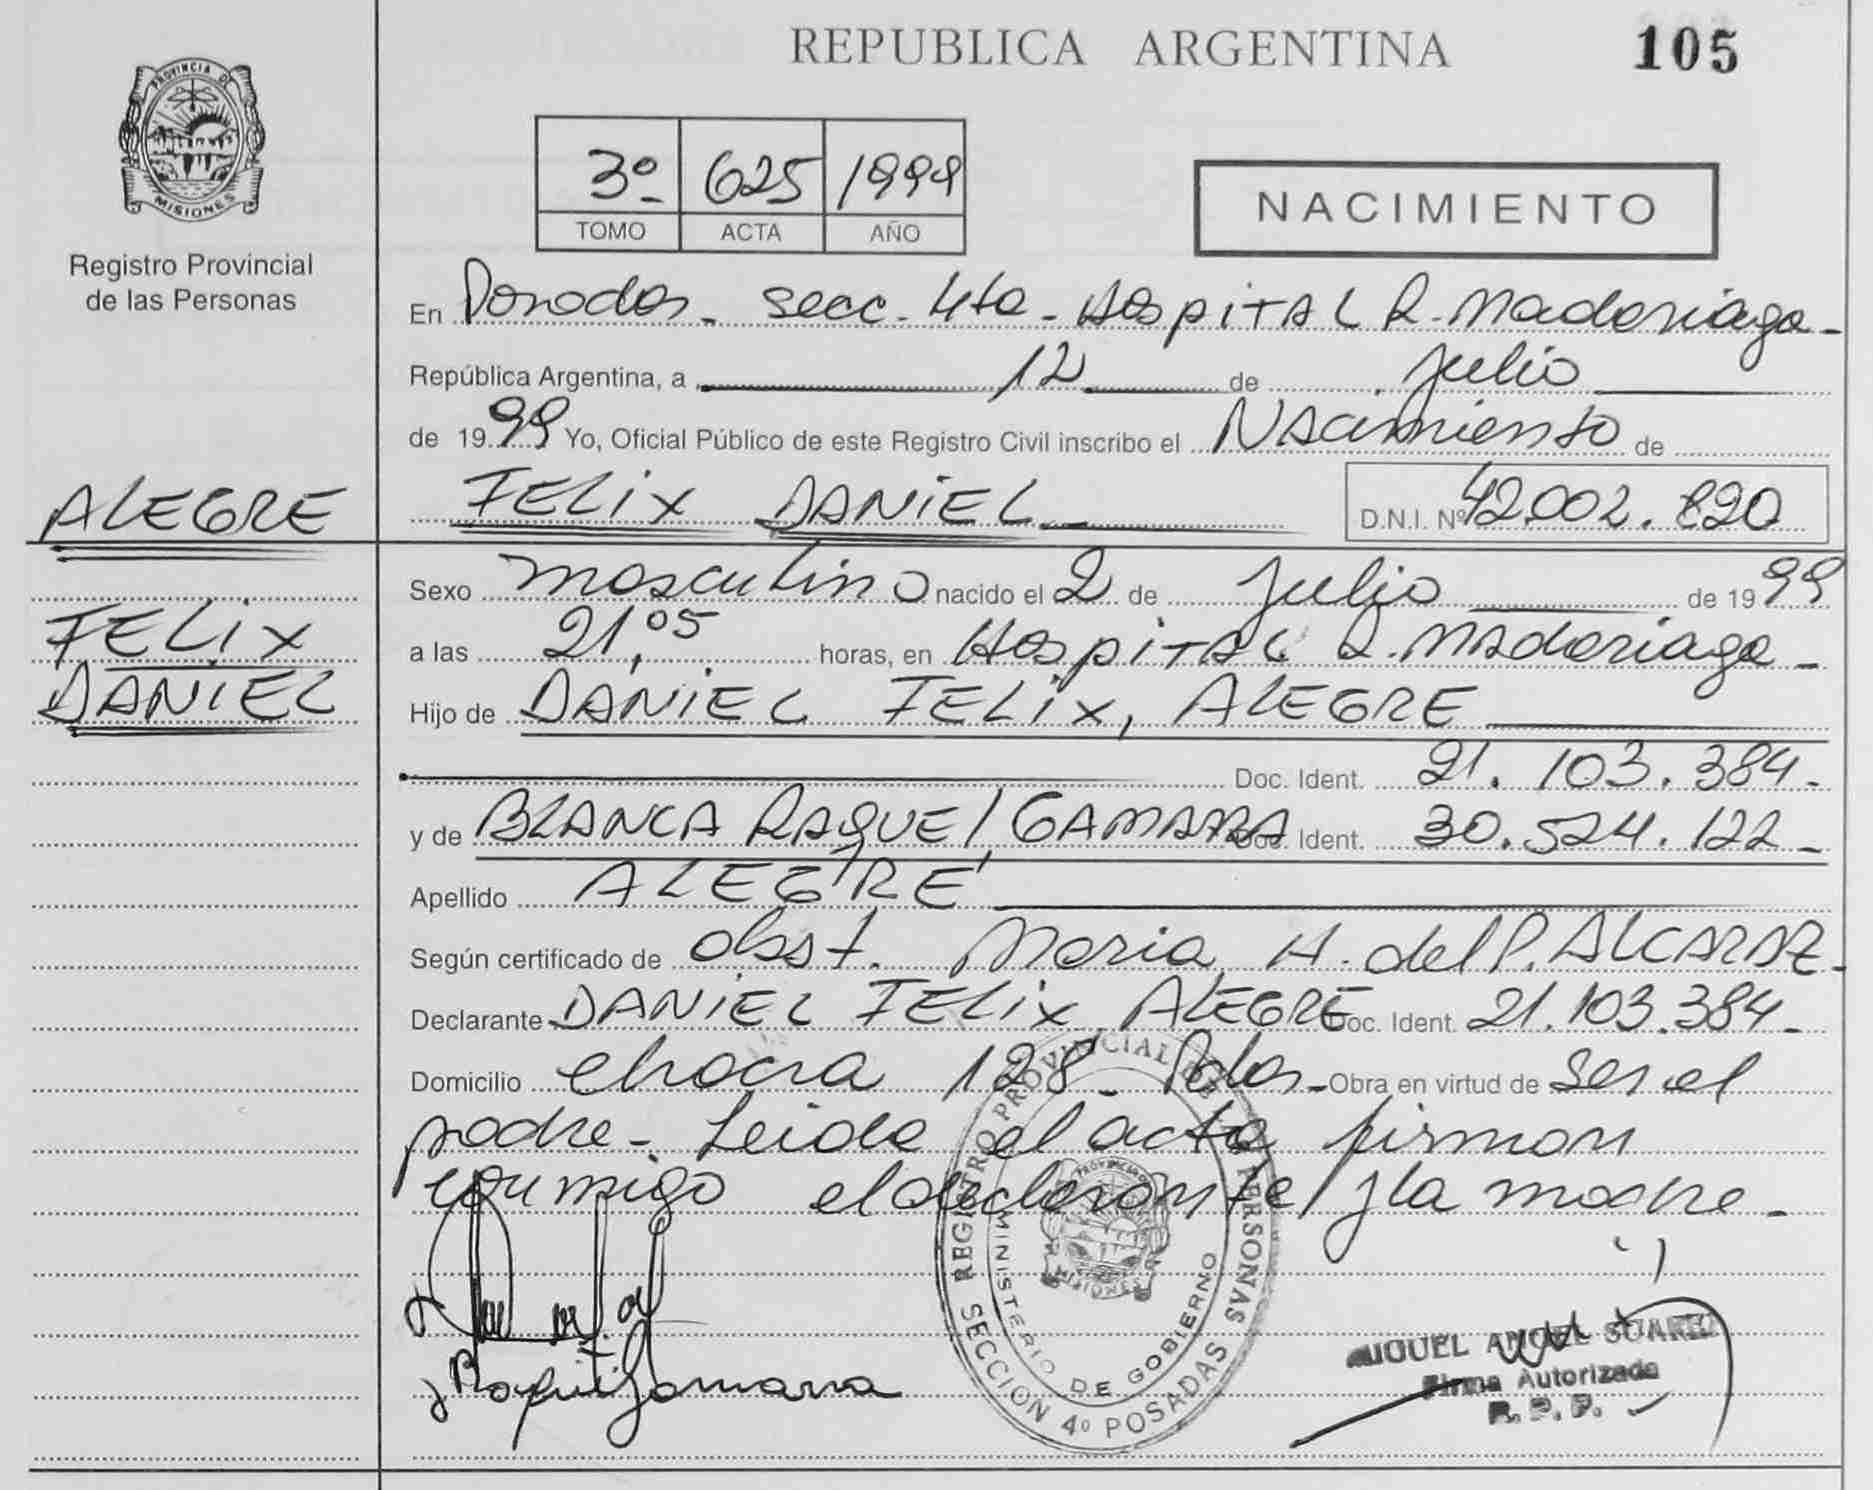 REPUBLICA ARGENTINA
105
PROVINCIA DE
MISIONES
Registro Provincial
de las Personas
3º 625 1999
TOMO ACTA AÑO
NACIMIENTO
En Posadas - secc. 4ta - Hospital R. Madariaga -
República Argentina, a 12 de julio
de 1999 Yo, Oficial Público de este Registro Civil inscribo el Nacimiento de
ALEGRE
FELIX DANIEL
D.N.I. Nº 42.002.820
Sexo masculino nacido el 2 de Julio de 1999
FELIX
a las 21,05 horas, en Hospital R. Madariaga -
DANIEL
Hijo de DANIEL FELIX, ALEGRE
Doc. Ident. 21.103.384.-
y de BLANCA RAQUEL, GAMARRA Doc. Ident. 30.524.122 -
Apellido ALEGRE
Según certificado de obst. Maria A. del P. ALCARAZ.
Declarante DANIEL FELIX ALEGRE Doc. Ident. 21.103.384.-
Domicilio chacra 128 - Pdas - Obra en virtud de ser el
padre - Leida el acta firman
conmigo el declarante y la madre. -
REGISTRO PROVINCIAL DE LAS PERSONAS
MINISTERIO DE GOBIERNO
PROVINCIA DE
MISIONES
SECCION 4º POSADAS
MIGUEL ANGEL SUAREZ
Firma Autorizada
R. P. P.